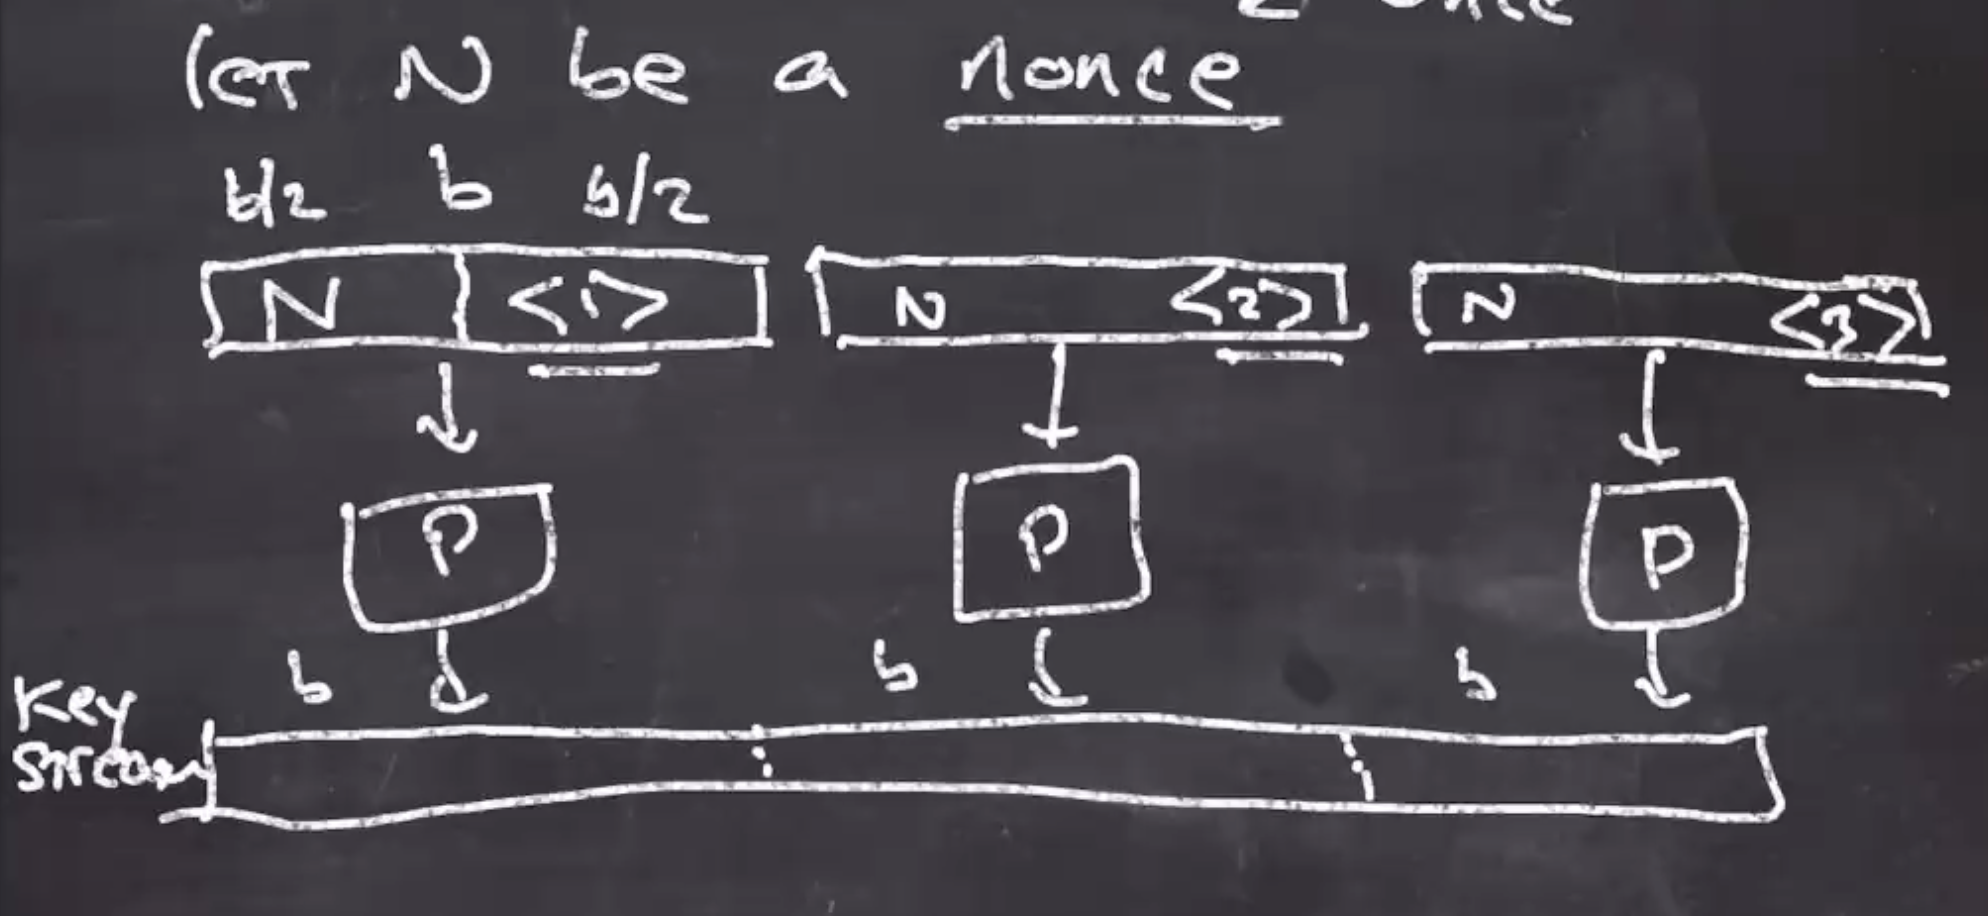 let N be a nonce
b/2 b b/2
N <1> N <2> N <3>
P P P
b b b
Key
Stream